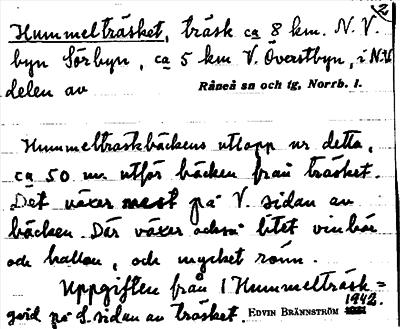 12
Hummelträsket, träsk ca 8 km. N. V.
byn Sörbyn, ca 5 km V. Överstbyn, i N.V.
delen av Råneå sn och tg, Norrb. l.
Hummelträskbäckens utlopp ur detta,
ca 50 m. utför bäcken från träsket.
Det växer mest på V. sidan av
bäcken. Där växer också litet vinbär
och hallon, och mycket rönn.
Uppgiften från 1 Hummelträsk=
gård på S. sidan av träsket. EDVIN BRÄNNSTRÖM 1942.